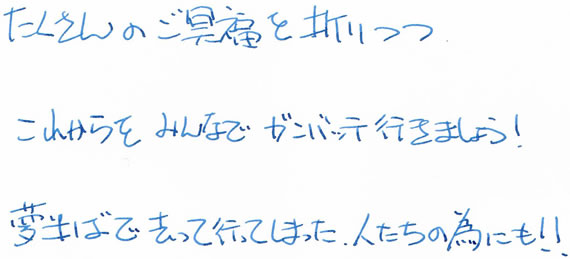 たくさんのご冥福を祈りつつ
これからを みんなで ガンバッテ行きましょう!
夢半ばで去って行ってしまった、人たちの為にも!!